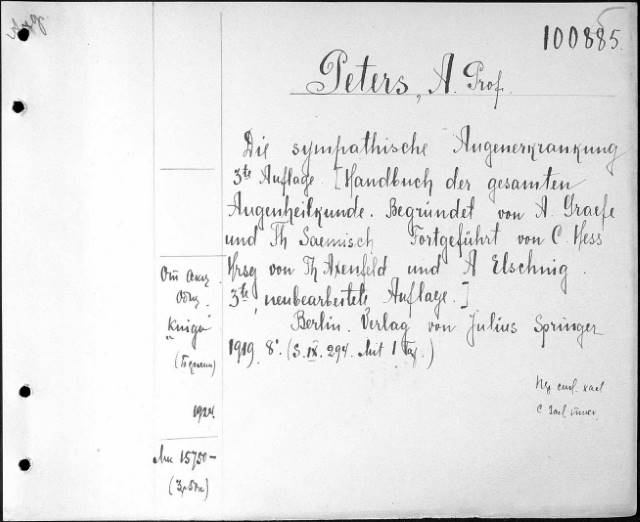 100885.
Peters, A. Prof.
Die sympathische Augenerkrankung
3te Auflage. [Handbuch der gesamten
Augenheilkunde. Begründet von A. Graefe
und Th Saemisch Fortgeführt von C. Hess
Hrsg von Th Axenfeld und A Elschnig.
3te, neubearbeitete Auflage.]
Berlin. Verlag von Julius Springer
1919. 8°. (S. IX. 294. Mit 1 Taf.)
От Акц.
Общ.
"Книга"
(Берлин)
1924.
15750-